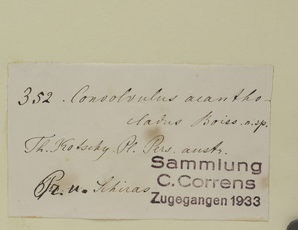 352. Convolvulus acantho-
cladus Boiss. n. sp.
Th. Kotschy Pl. Pers. austr.
Pr. u. Schiras
Sammlung
C. Correns
Zugegangen 1933